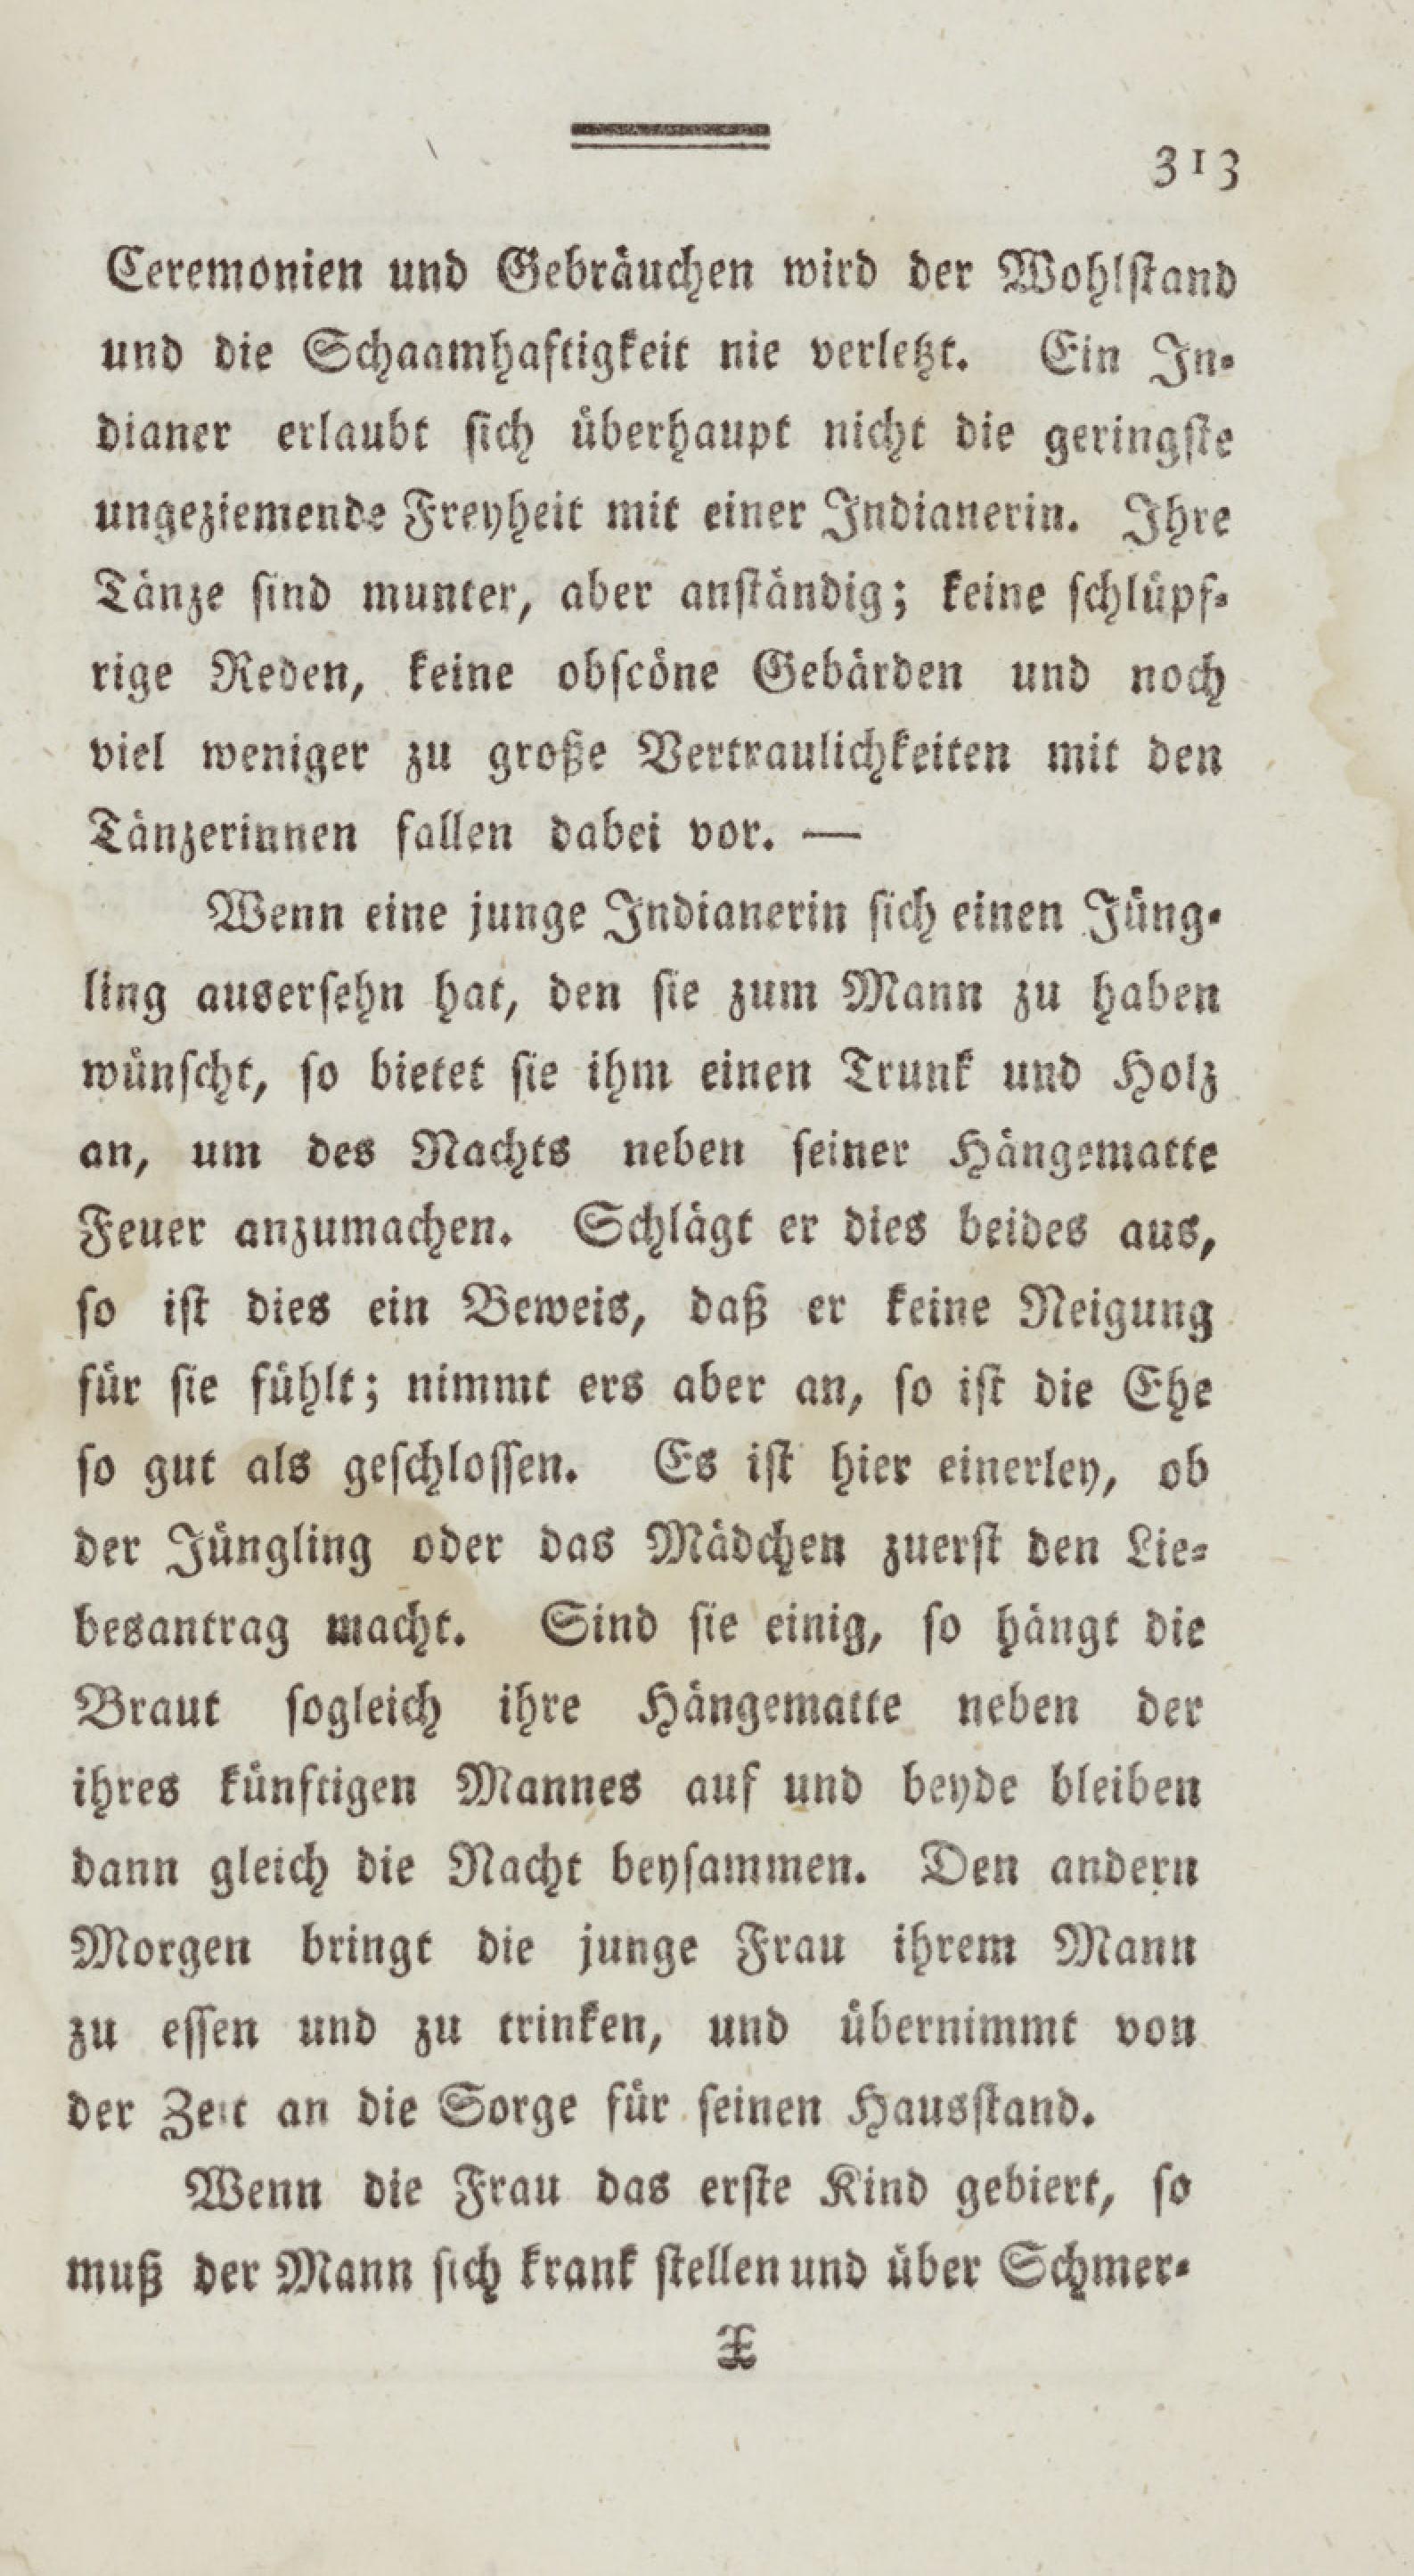 313
Ceremonien und Gebräuchen wird der Wohlstand
und die Schaamhaftigkeit nie verletzt. Ein In-
dianer erlaubt sich überhaupt nicht die geringste
ungeziemende Freyheit mit einer Indianerin. Ihre
Tänze sind munter, aber anständig; keine schlüpf-
rige Reden, keine obscöne Gebärden und noch
viel weniger zu große Vertraulichkeiten mit den
Tänzerinnen fallen dabei vor. —
Wenn eine junge Indianerin sich einen Jüng-
ling ausersehn hat, den sie zum Mann zu haben
wünscht, so bietet sie ihm einen Trunk und Holz
an, um des Nachts neben seiner Hängematte
Feuer anzumachen. Schlägt er dies beides aus,
so ist dies ein Beweis, daß er keine Neigung
für sie fühlt; nimmt ers aber an, so ist die Ehe
so gut als geschlossen. Es ist hier einerley, ob
der Jüngling oder das Mädchen zuerst den Lie-
besantrag macht. Sind sie einig, so hängt die
Braut sogleich ihre Hängematte neben der
ihres künftigen Mannes auf und beyde bleiben
dann gleich die Nacht beysammen. Den andern
Morgen bringt die junge Frau ihrem Mann
zu essen und zu trinken, und übernimmt von
der Zeit an die Sorge für seinen Hausstand.
Wenn die Frau das erste Kind gebiert, so
muß der Mann sich krank stellen und über Schmer-
X